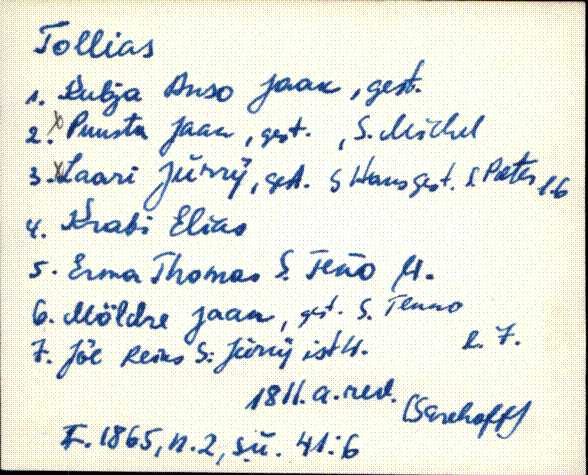 Tollias
1. Kubja Anso Jaak, gest.
2. x Puusta Jaan, gest. , S. Michel
3. x Laari Jürrÿ, gest. S Hans gest. S. Peter l. 6
4. Krabi Elias
5. Erma Thomas S. Teño H.
6. Möldre Jaan, gest. S. Tenno
7. Jöe Reins S: Jürrÿ ist H. l. 7.
1811.a.rev. (Serehoff)
F. 1865, n. 2, sü. 41:6